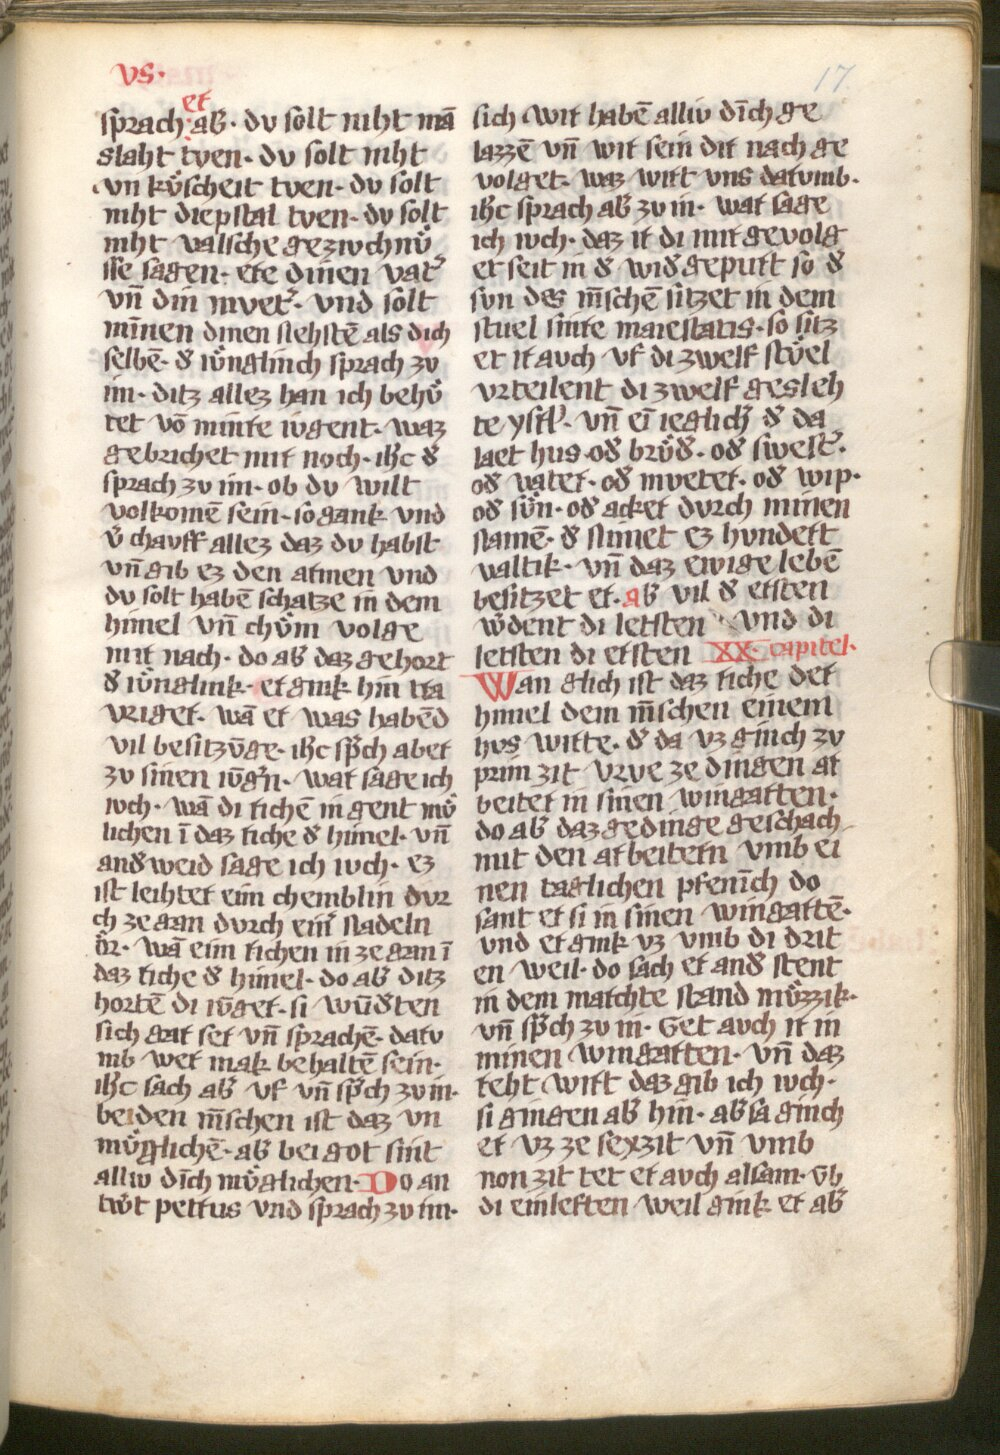 vs.
17.
et
sprach ab̕. du solt niht mā
slaht tuen. du solt niht
vn kuͤscheit tuen. du solt
niht diepstal tuen. du solt
niht valsche geziuchnuͤ
sse sagen. ere dinen vat̕
vn̄ din muet̕. vnd solt
minnen dinen nehstē als dich
selbē. d̕ iuͤnglinch sprach zu
im. ditz allez han ich behuͤ
tet vō minre iugent. waz
gebrichet mir noch. ih̄c d̕
sprach zu im. ob du wilt
volkomē sein. so gank vnd
v̕ chauff allez daz du habst
vn̄ gib ez den armen vnd
du solt habē schatze in dem
himel vn̄ chuͤm volge
mir nach. do ab̕ daz gehort
d̕ iuͤnglink. er gink hin tra
vriger. wā er was habēd
vil besitzūge. ih̄c sp̄ch aber
zu sinen iūg̕n. war sage ich
iuch. wā di richē in gent muͤ
lichen ī daz riche d̕ himel. vn̄
and̕ weid sage ich iuch. ez
ist leihter eim chemblin dur
ch ze gran durch ein̕ nadeln
oͤr. wā eim richen in ze gran ī
daz riche d̕ himel. do ab̕ ditz
hortē di iūger. si wūd̕ten
sich gar ser vn̄ sprachē. daru
mb wer mak behaltē sein.
ih̄c sach ab̕ vf vn̄ sp̄ch zu in.
bei den m̄schen ist daz vn
muͤglichē. ab̕ bei got sint
alliu dīch muͤglichen. Do an
twͦrt petrus vnd sprach zu im.
sich wir habē alliu dīch ge
lazzē vn̄ wir sein dir nach ge
volget. waz wirt vns darumb.
ih̄c sprach ab̕ zu in. war sage
ich iuch. daz ir di mir gevolg
er seit in d̕ wid̕gepurt so d̕
sun des m̄schē sitzet in dem
stuel sinre maiestatis. so sitz
er ir auch vf di zwelf stuͤel
vrteilent di zwelf gesleh
te ysrl̕. vn̄ eī ieglich̕ d̕ da
laet hus. od̕ bruͤd̕. od̕ swest̕.
od̕ vater. od̕ mueter. od̕ wip.
od̕ suͤn. od̕ acker durch minen
namē. d̕ nimet ez hundert
valtik. vn̄ daz ewige lebē
besitzet er. ab̕ vil d̕ ersten
w̕dent di letsten vnd di
letsten di ersten XX. capitel.
Wan glich ist daz riche der
himel dem m̄schen einem
hus wirte. d̕ da vz ginch zu
prim zit vrue ze dingen ar
beiter in sinen wingarten.
do ab̕ daz gedinge geschach
mit den arbeitern vmb ei
nen taglichen pfenīch do
sant er si in sinen wingartē.
vnd er gink vz vmb di drit
en weil. do sach er and̕ stent
in dem marchte stand muͤzzik.
vn̄ sp̄ch zu in. Get auch ir in
minen wingarten. vn̄ daz
reht wirt daz gib ich iuch.
si gingen ab̕ hin. ab̕ sa ginch
er vz ze sexzit vn̄ vmb
non zit tet er auch alsam. v̄b
di einleften weil gink er ab̕